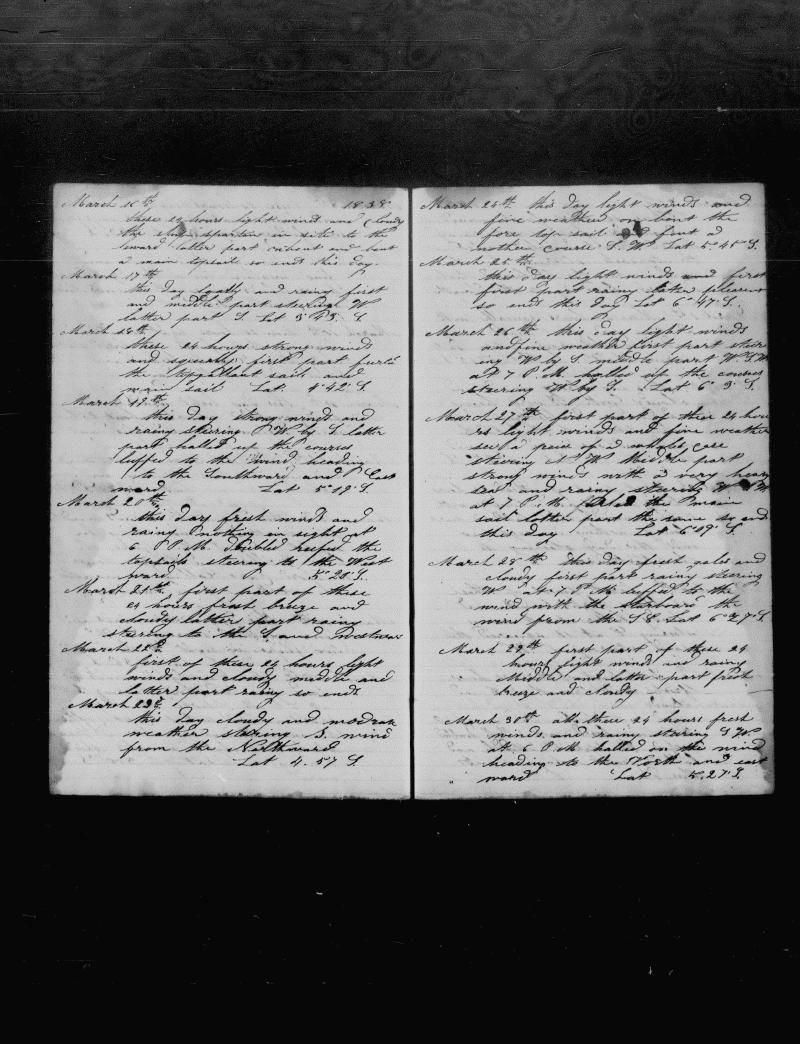 March 16th 1838
these 24 hours light winds and cloudy
the ship spartan in site to the
leward latter part unbent and bent
a main topsail so ends this day
March 17th
this day squally and rainy first
and middle part steering W
latter part S. Lat 3°43 S.
March 18th
these 24 hours strong winds
and squally first part furld
the topgallant sails and
main sail Lat. 4°42 S.
March 19th
this day strong winds and
rainy steering W. by S latter
part halled up the courses
luffed to the wind heading
to the Southward and East
ward Lat 5°19 S.
March 20th
this day fresh winds and
rainy nothing in sight at
6 P.M. doubled reefed the
topsails steering to the West
ward 5°20 S.
March 21th first part of these
24 hours fresh breeze and
cloudy latter part rainy
steering to the S. and Westwar
March 22th
first of these 24 hours light
winds and cloudy middle and
latter part rainy so ends
March 23th
this day cloudy and modrate
weather steering S. wind
from the Northward
Lat 4.57 S.
March 24th this day light winds and
fine weather on bent the
fore top sail and bent a
nother course S.W. Lat 5°45 S.
March 25th
this day light winds and first
first part rainy later pleasant
so ends this day Lat 6°47 S.
March 26th this day light winds
and fine weather first part steer
ing W by S middle part W.S.W
at 7 P.M. halled up the courses
steering W by S. Lat 6°3 S.
March 27th first part of these 24 hou
rs light winds and fine weather
see a peice of a
steering W middle part
strong winds with a very heavy
sea and rainy steering
at 7 P.M. the main
sail latter part the same so end
this day Lat 6°29 S.
March 28th this day fresh gales and
cloudy first part rainy steering
W at 7 P.M. luffed to the
wind with the starboard the
wind from the S.E. Lat 6°27 S.
March 29th first part of these 24
hours light winds and rainy
Middle and latter part fresh
breeze and cloudy
March 30th all these 24 hours fresh
winds and rainy steering S.W
at 6 P.M. halled on the wind
heading to the North and east
ward Lat 5.27 S.